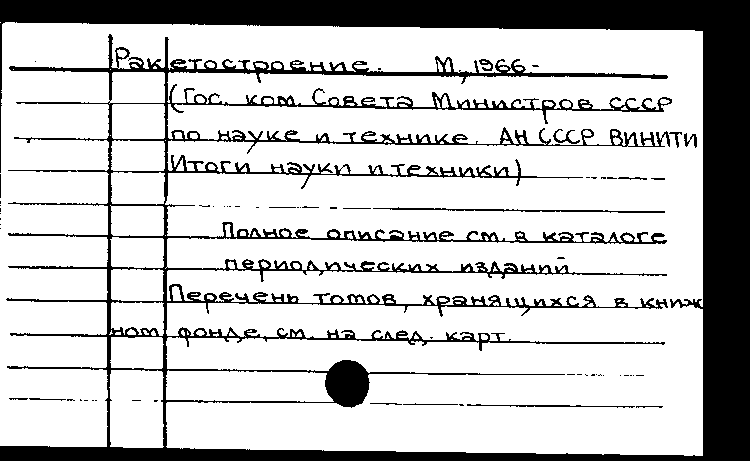 Ракетостроение. М., 1966-
(Гос. ком. Совета Министров СССР
по науке и технике. АН СССР. ВИНИТИ
Итоги науки и техники)
Полное описание см. в каталоге
периодических изданий.
Перечень томов, хранящихся в книж
ном фонде, см. на след. карт.